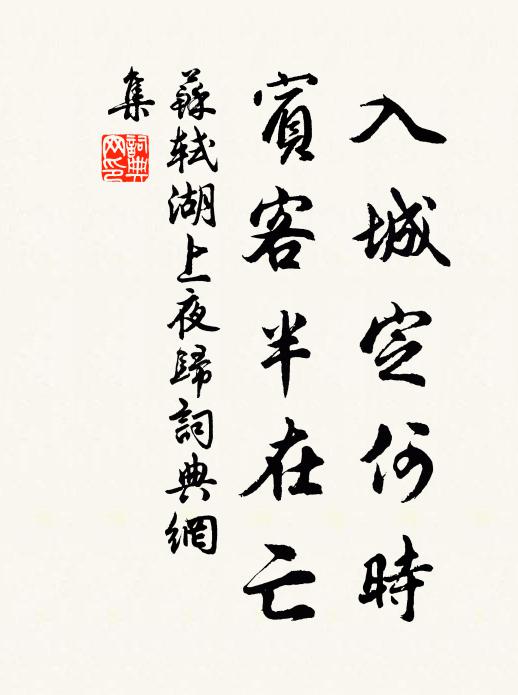 入城定何時
賓客半在亡
蘇軾湖上夜歸詞典網
集
詞典
网印